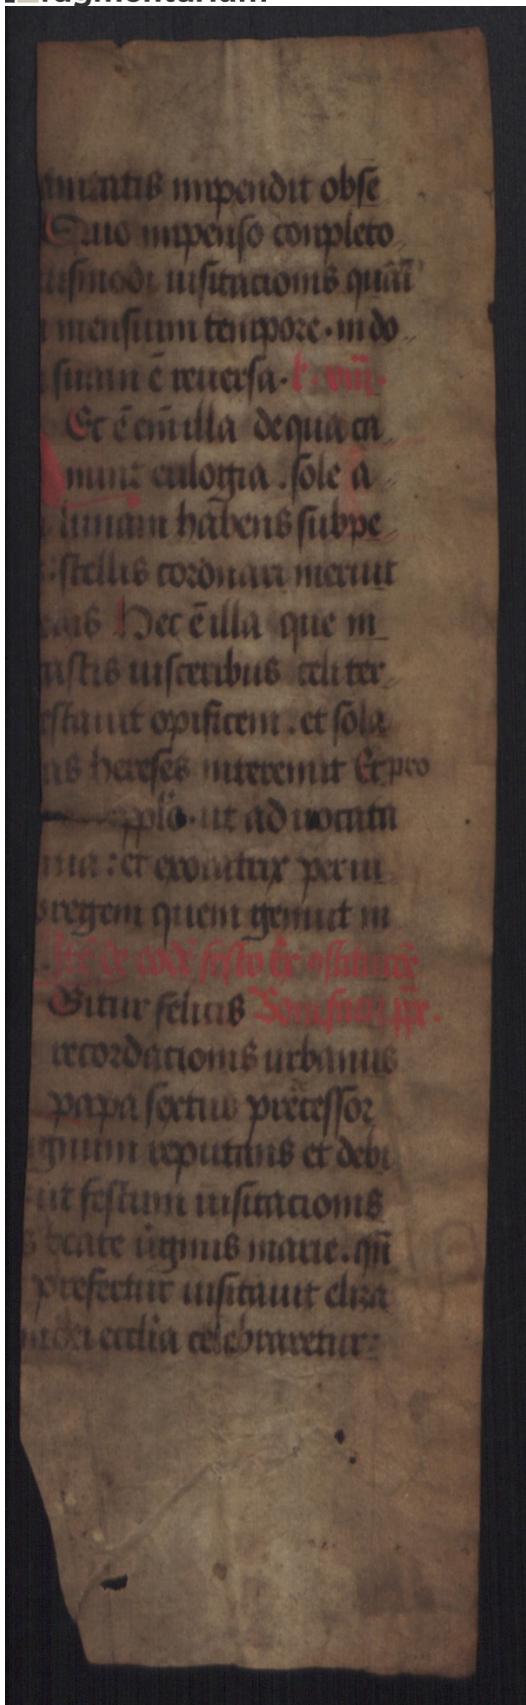 anitatis impendit obse
Quo impenso conpleto
uismodi uisitacionis quāī
mensium tempore · in do
suam ē reuersa · l · viii ·
Et ē eīn illa de qua ca
nunt eulogia . sole a
lunam habens sub pe
: stellis coronari meruit
Hec ē illa que in
castis uisceribus celi ter
estauit opificem . et sola
as hereses interemit Et pro
pplō · ut aduocata
nia : et exoratrix perui
regem quem genuit in
Itē de eodē festo
Gitur felicis Bonifacii pp̄e .
recordacionis urbanus
papa sextus precessor
gnum reputans et debi
ut festum uisitacionis
s beate u̇ginis marie . qn̄
prefertur uisitauit eliza
dei ecclīa celebraretur :